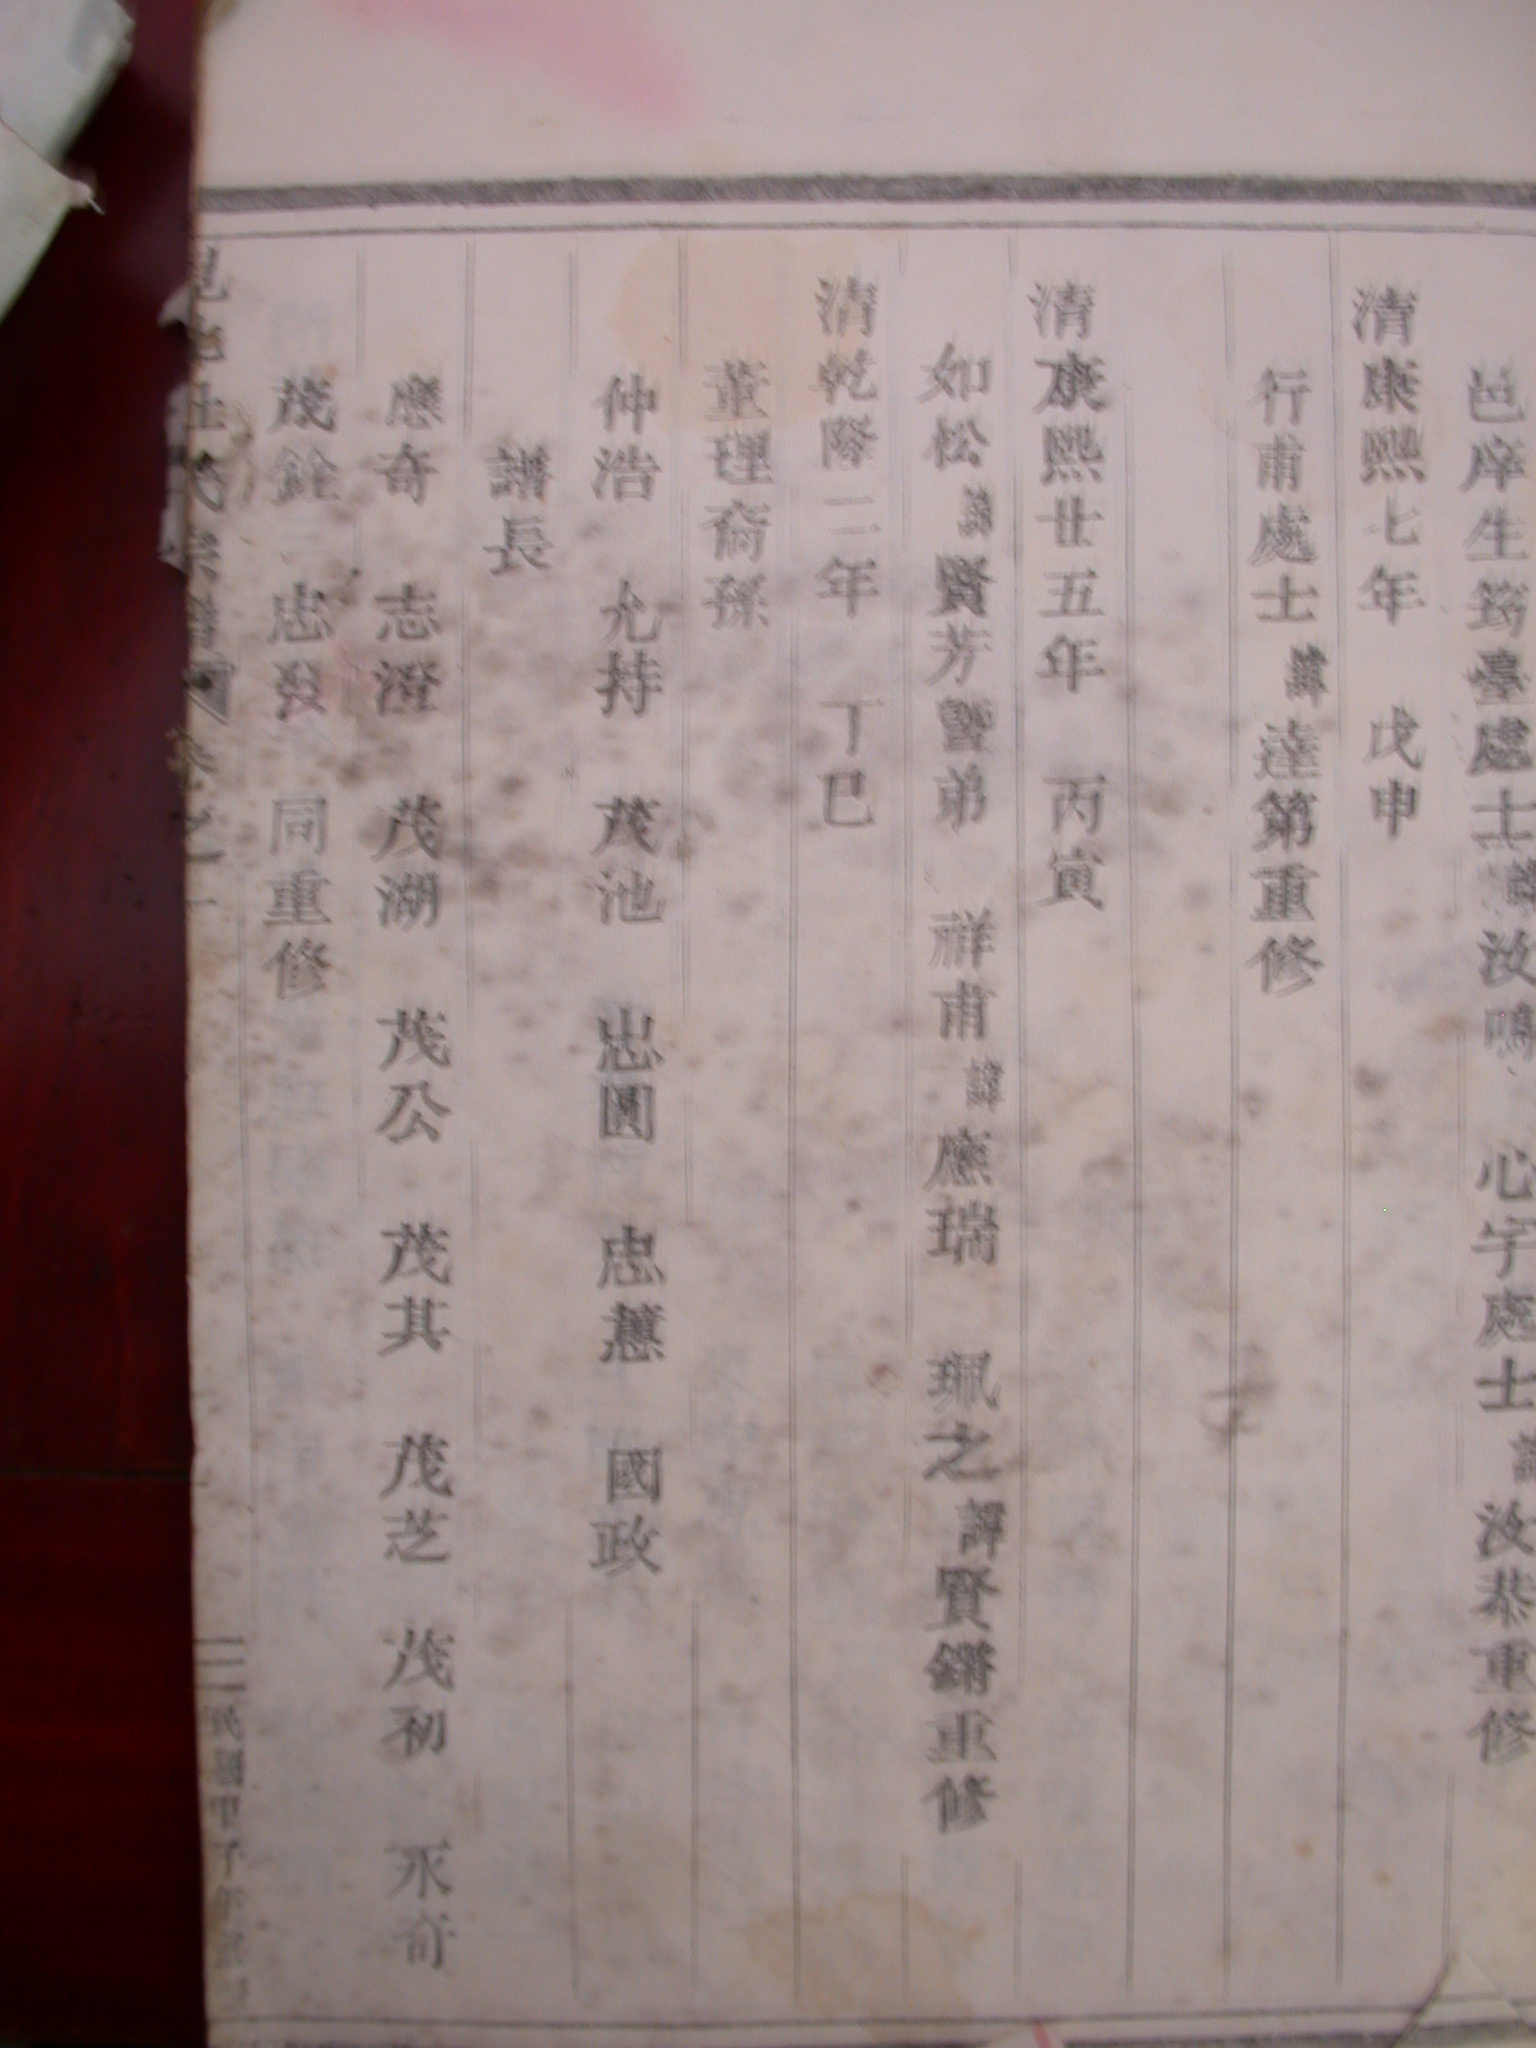 邑庠生筠臺處士諱汝鳴 心宇處士諱汝恭重修
清康熙七年 戊申
行甫處士諱達第重修
清康熙廿五年 丙寅
如松諱賢芳暨弟 祥甫諱應瑞 珮之諱賢鏘重修
清乾隆二年 丁巳
董理裔孫
仲浩 允持 茂池 忠圓 忠蕙 國政
譜長
應奇 志澄 茂湖 茂公 茂其 茂芝 茂初 永奇
茂銓 忠發 同重修
氏宗譜 卷之一 三 民國甲子年